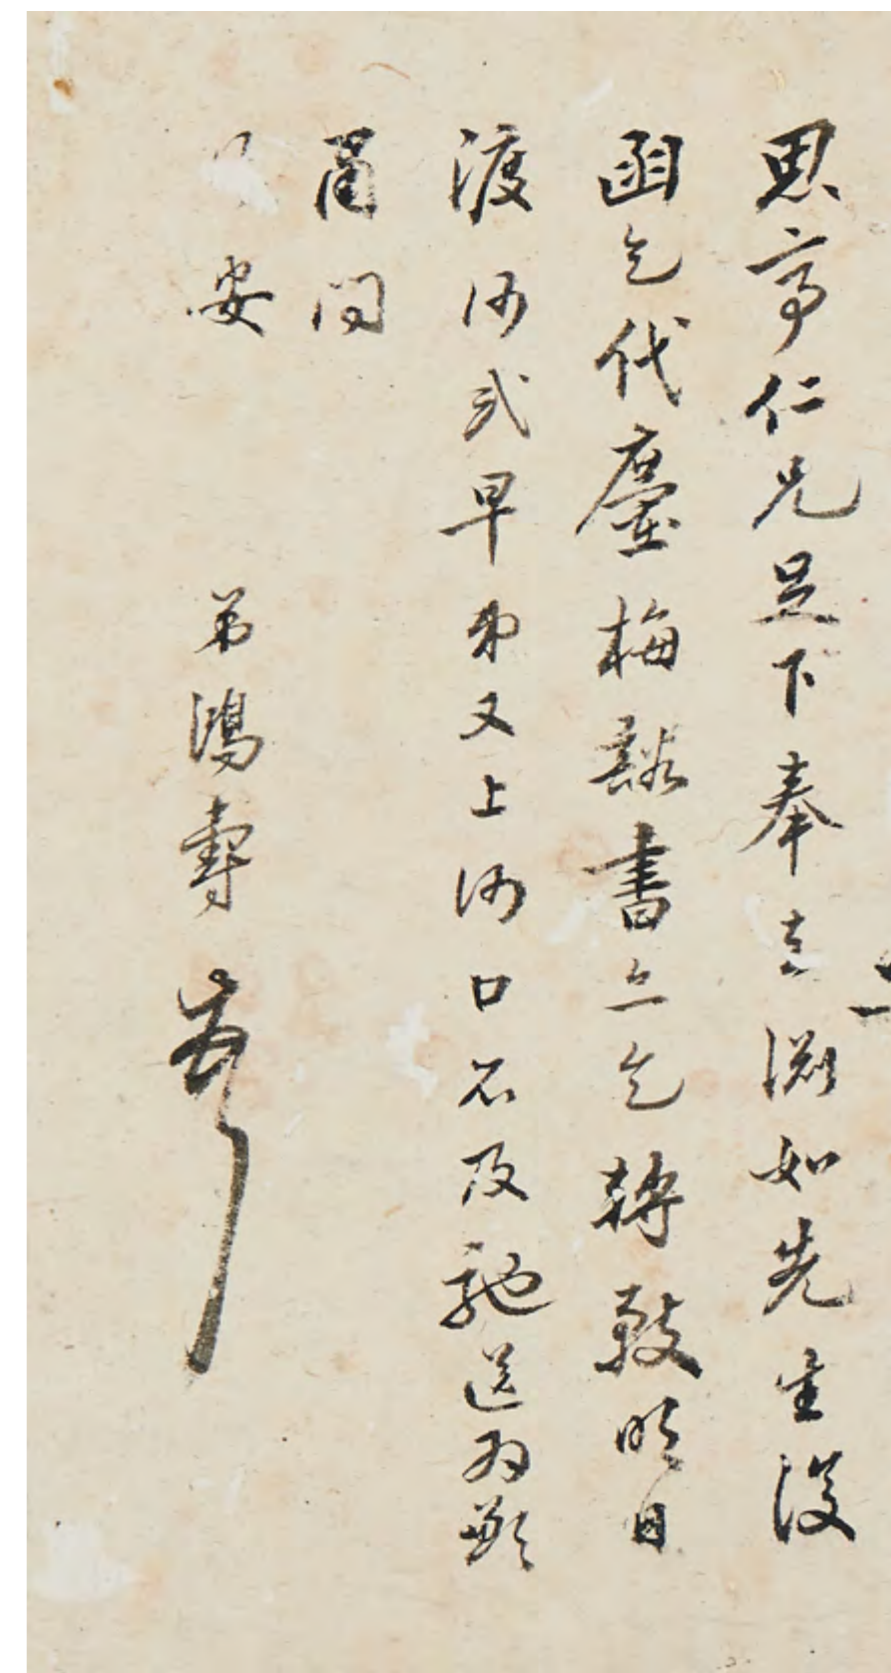 思亭仁兄足下奉去淵如先生復
函乞代梅谿書亦乞轉致明日
渡河早弟又上河口不及馳送為歉
耑問
安
弟鴻壽頓首